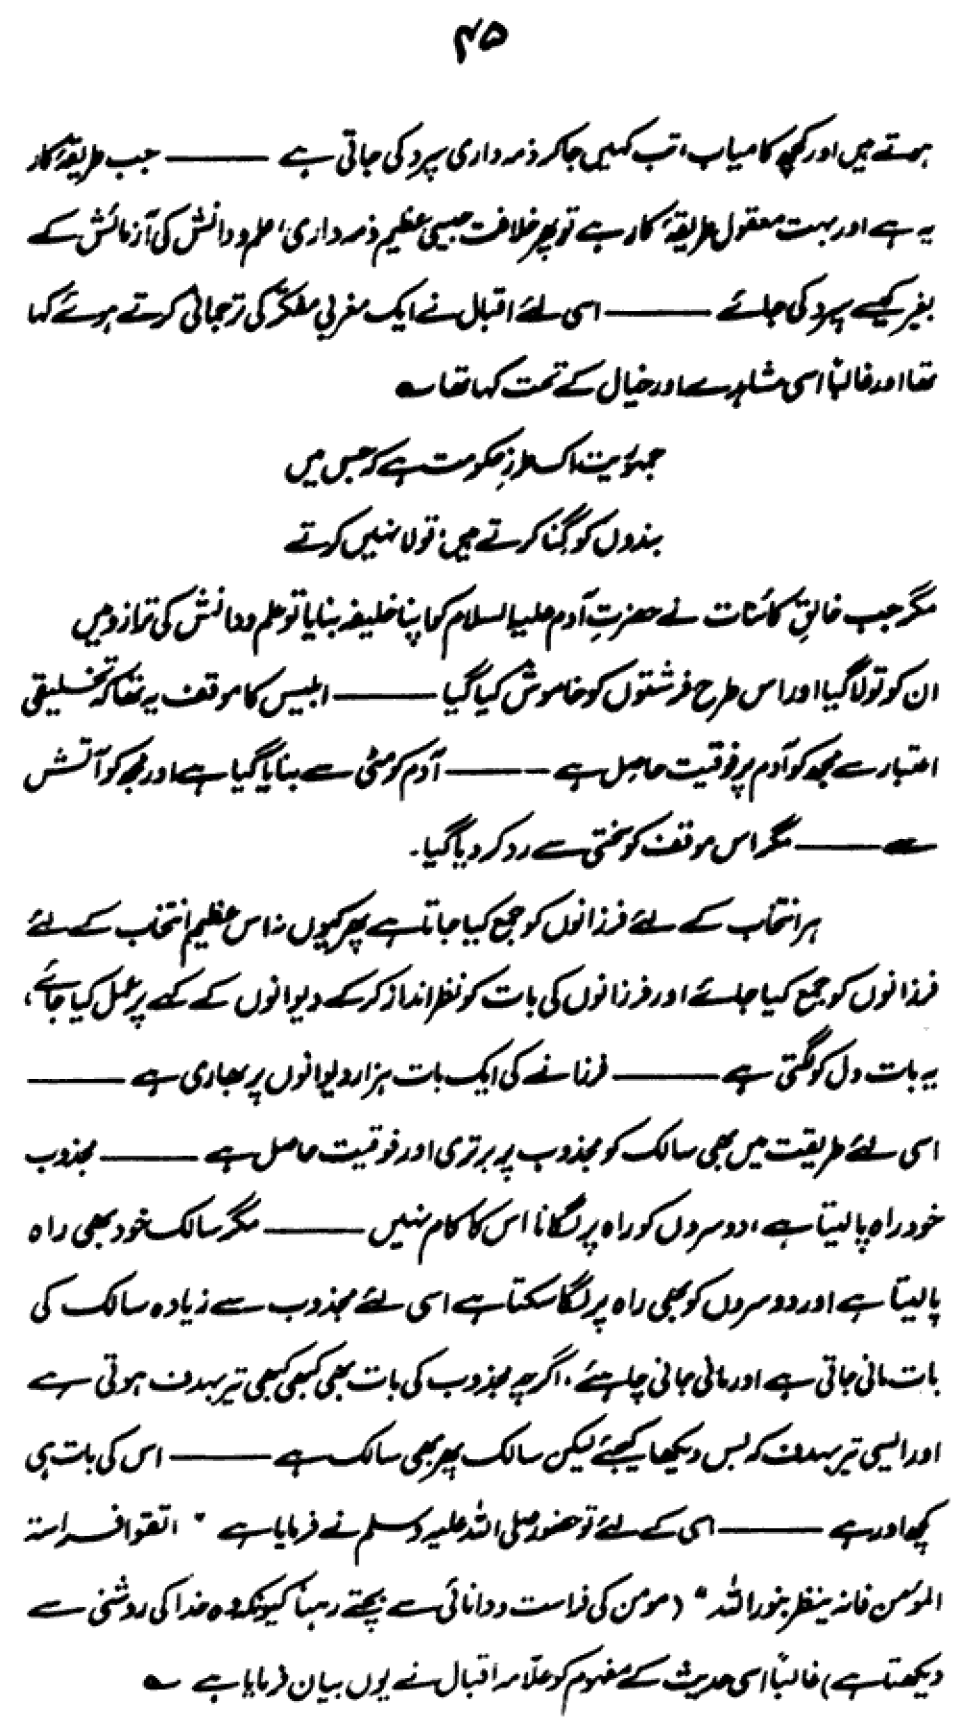 ۴۵
ہوتے ہیں اور کچھ کامیاب، تب کہیں جا کر ذمہ داری سپرد کی جاتی ہے ——— جب طریقۂ کار
یہ ہے اور بہت معقول طریقۂ کار ہے تو پھر خلافت جیسی عظیم ذمہ داری، علم و دانش کی آزمائش کے
بغیر کیسے سپرد کی جائے ——— اسی لئے اقبال نے ایک مغربی مفکر کی ترجمانی کرتے ہوئے کہا
تھا اور غالباً اسی مشاہدے اور خیال کے تحت کہا تھا ؎
جمہوریت اک طرزِ حکومت ہے کہ جس میں
بندوں کو گنا کرتے ہیں، تولا نہیں کرتے
مگر جب خالقِ کائنات نے حضرتِ آدم علیہ السلام کو اپنا خلیفہ بنایا تو علم و دانش کی ترازو میں
ان کو تولا گیا اور اس طرح فرشتوں کو خاموش کیا گیا ——— ابلیس کا موقف یہ تھا کہ تخلیقی
اعتبار سے مجھ کو آدم پر فوقیت حاصل ہے ——— آدم کو مٹی سے بنایا گیا ہے اور مجھ کو آتش
سے ——— مگر اس موقف کو سختی سے رد کر دیا گیا۔
ہر انتخاب کے لئے فرزانوں کو جمع کیا جاتا ہے پھر کیوں نہ اس عظیم انتخاب کے لئے
فرزانوں کو جمع کیا جائے اور فرزانوں کی بات کو نظر انداز کر کے دیوانوں کے کہے پر عمل کیا جائے،
یہ بات دل کو لگتی ہے ——— فرزانے کی ایک بات ہزار دیوانوں پر بھاری ہے ———
اسی لئے طریقت میں بھی سالک کو مجذوب پر برتری اور فوقیت حاصل ہے ——— مجذوب
خود راہ پا لیتا ہے، دوسروں کو راہ پر لگانا اس کا کام نہیں ——— مگر سالک خود بھی راہ
پا لیتا ہے اور دوسروں کو بھی راہ پر لگا سکتا ہے اسی لئے مجذوب سے زیادہ سالک کی
بات مانی جاتی ہے اور مانی جانی چاہئے، اگرچہ مجذوب کی بات بھی کبھی کبھی تیر بہدف ہوتی ہے
اور ایسی تیر بہدف کہ بس دیکھا کیجئے لیکن سالک پھر بھی سالک ہے ——— اس کی بات ہی
کچھ اور ہے ——— اسی کے لئے تو حضور صلی اللہ علیہ وسلم نے فرمایا ہے " اتقوا فراسة
المؤمن فانه ینظر بنور اللہ " (مومن کی فراست و دانائی سے بچتے رہنا کیونکہ وہ خدا کی روشنی سے
دیکھتا ہے) غالباً اسی حدیث کے مفہوم کو علامہ اقبال نے یوں بیان فرمایا ہے ؎